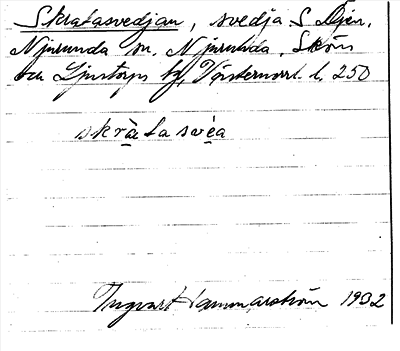 Skratasvedjan, svedja S Djen,
Njurunda sn. Njurunda, Sköns
och Ljustorps tg, Västernorrl. l. 250
skràtasvéa
Ingvar Hammarström 1932